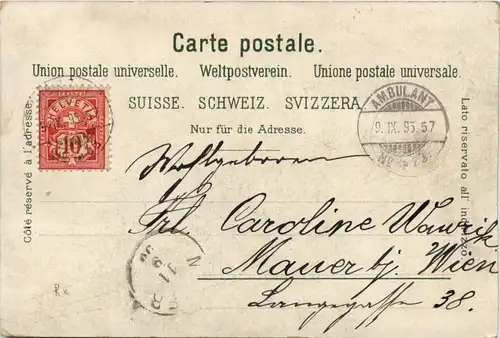 Carte postale.
Union postale universelle. Weltpostverein. Unione postale universale.
SUISSE. SCHWEIZ. SVIZZERA.
Nur für die Adresse.
Côté réservé à l'adresse.
Lato riservato all' indirizzo.
HELVETIA
10
AMBULANT
9. IX. 95. 57
Wohlgeboren
Frl. Caroline Wawrik
Mauer bj. Wien
Langegasse 38.
Rx